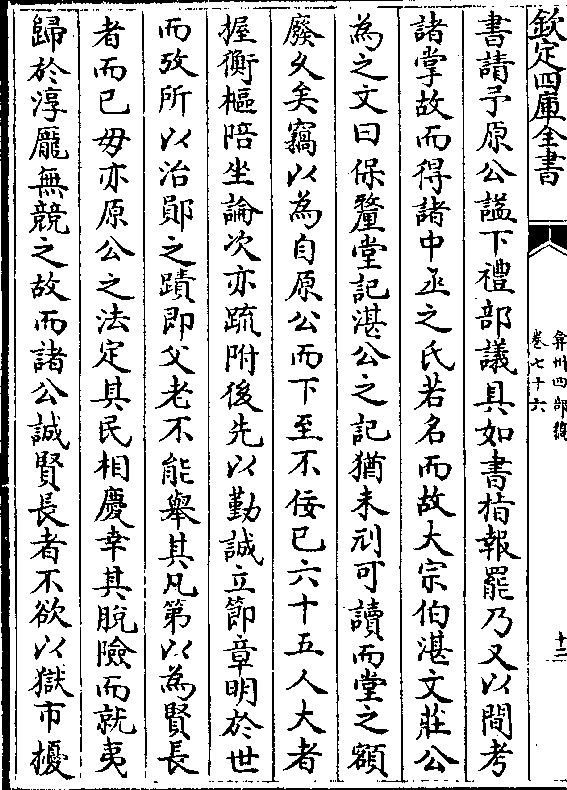 欽定四庫全書
弇州四部稿
卷七十六
十二
書請予原公諡下禮部議具如書指報罷乃又以間考
諸掌故而得諸中丞之氏若名而故大宗伯湛文莊公
為之文曰保釐堂記湛公之記猶未刓可讀而堂之額
廢久矣竊以為自原公而下至不佞已六十五人大者
握衡樞陪坐論次亦疏附後先以勤誠立節章明於世
而攷所以治鄖之蹟即父老不能舉其凡第以為賢長
者而已毋亦原公之法定其民相慶幸其脫險而就夷
歸於淳龐無競之故而諸公誠賢長者不欲以獄市擾